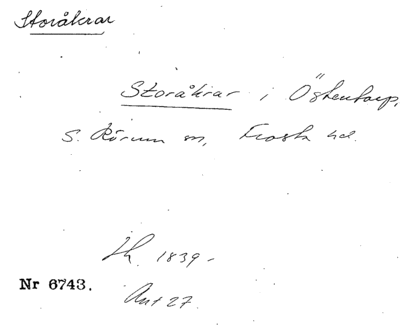 Storåkrar
Storåkrar i Östentorp,
S. Rörum sn, Frosta hd.
Sk. 1839.
Nr 6743.
Ant 27.